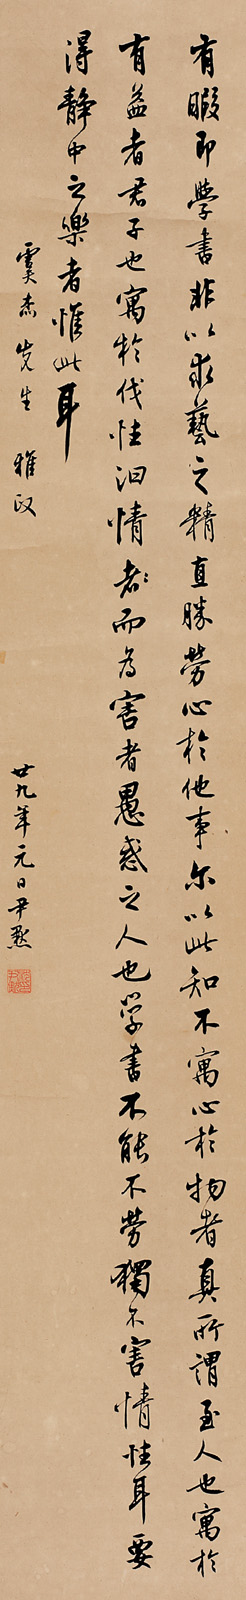 有暇即學書非以求藝之精直勝勞心於他事尔以此知不寓心於物者真所謂至人也寓於
有益者君子也寓於伐性汩情者而為害者愚惑之人也學書不能不勞獨不害情性耳要
得静中之樂者惟此耳
先生 雅政
廿九年元日尹默